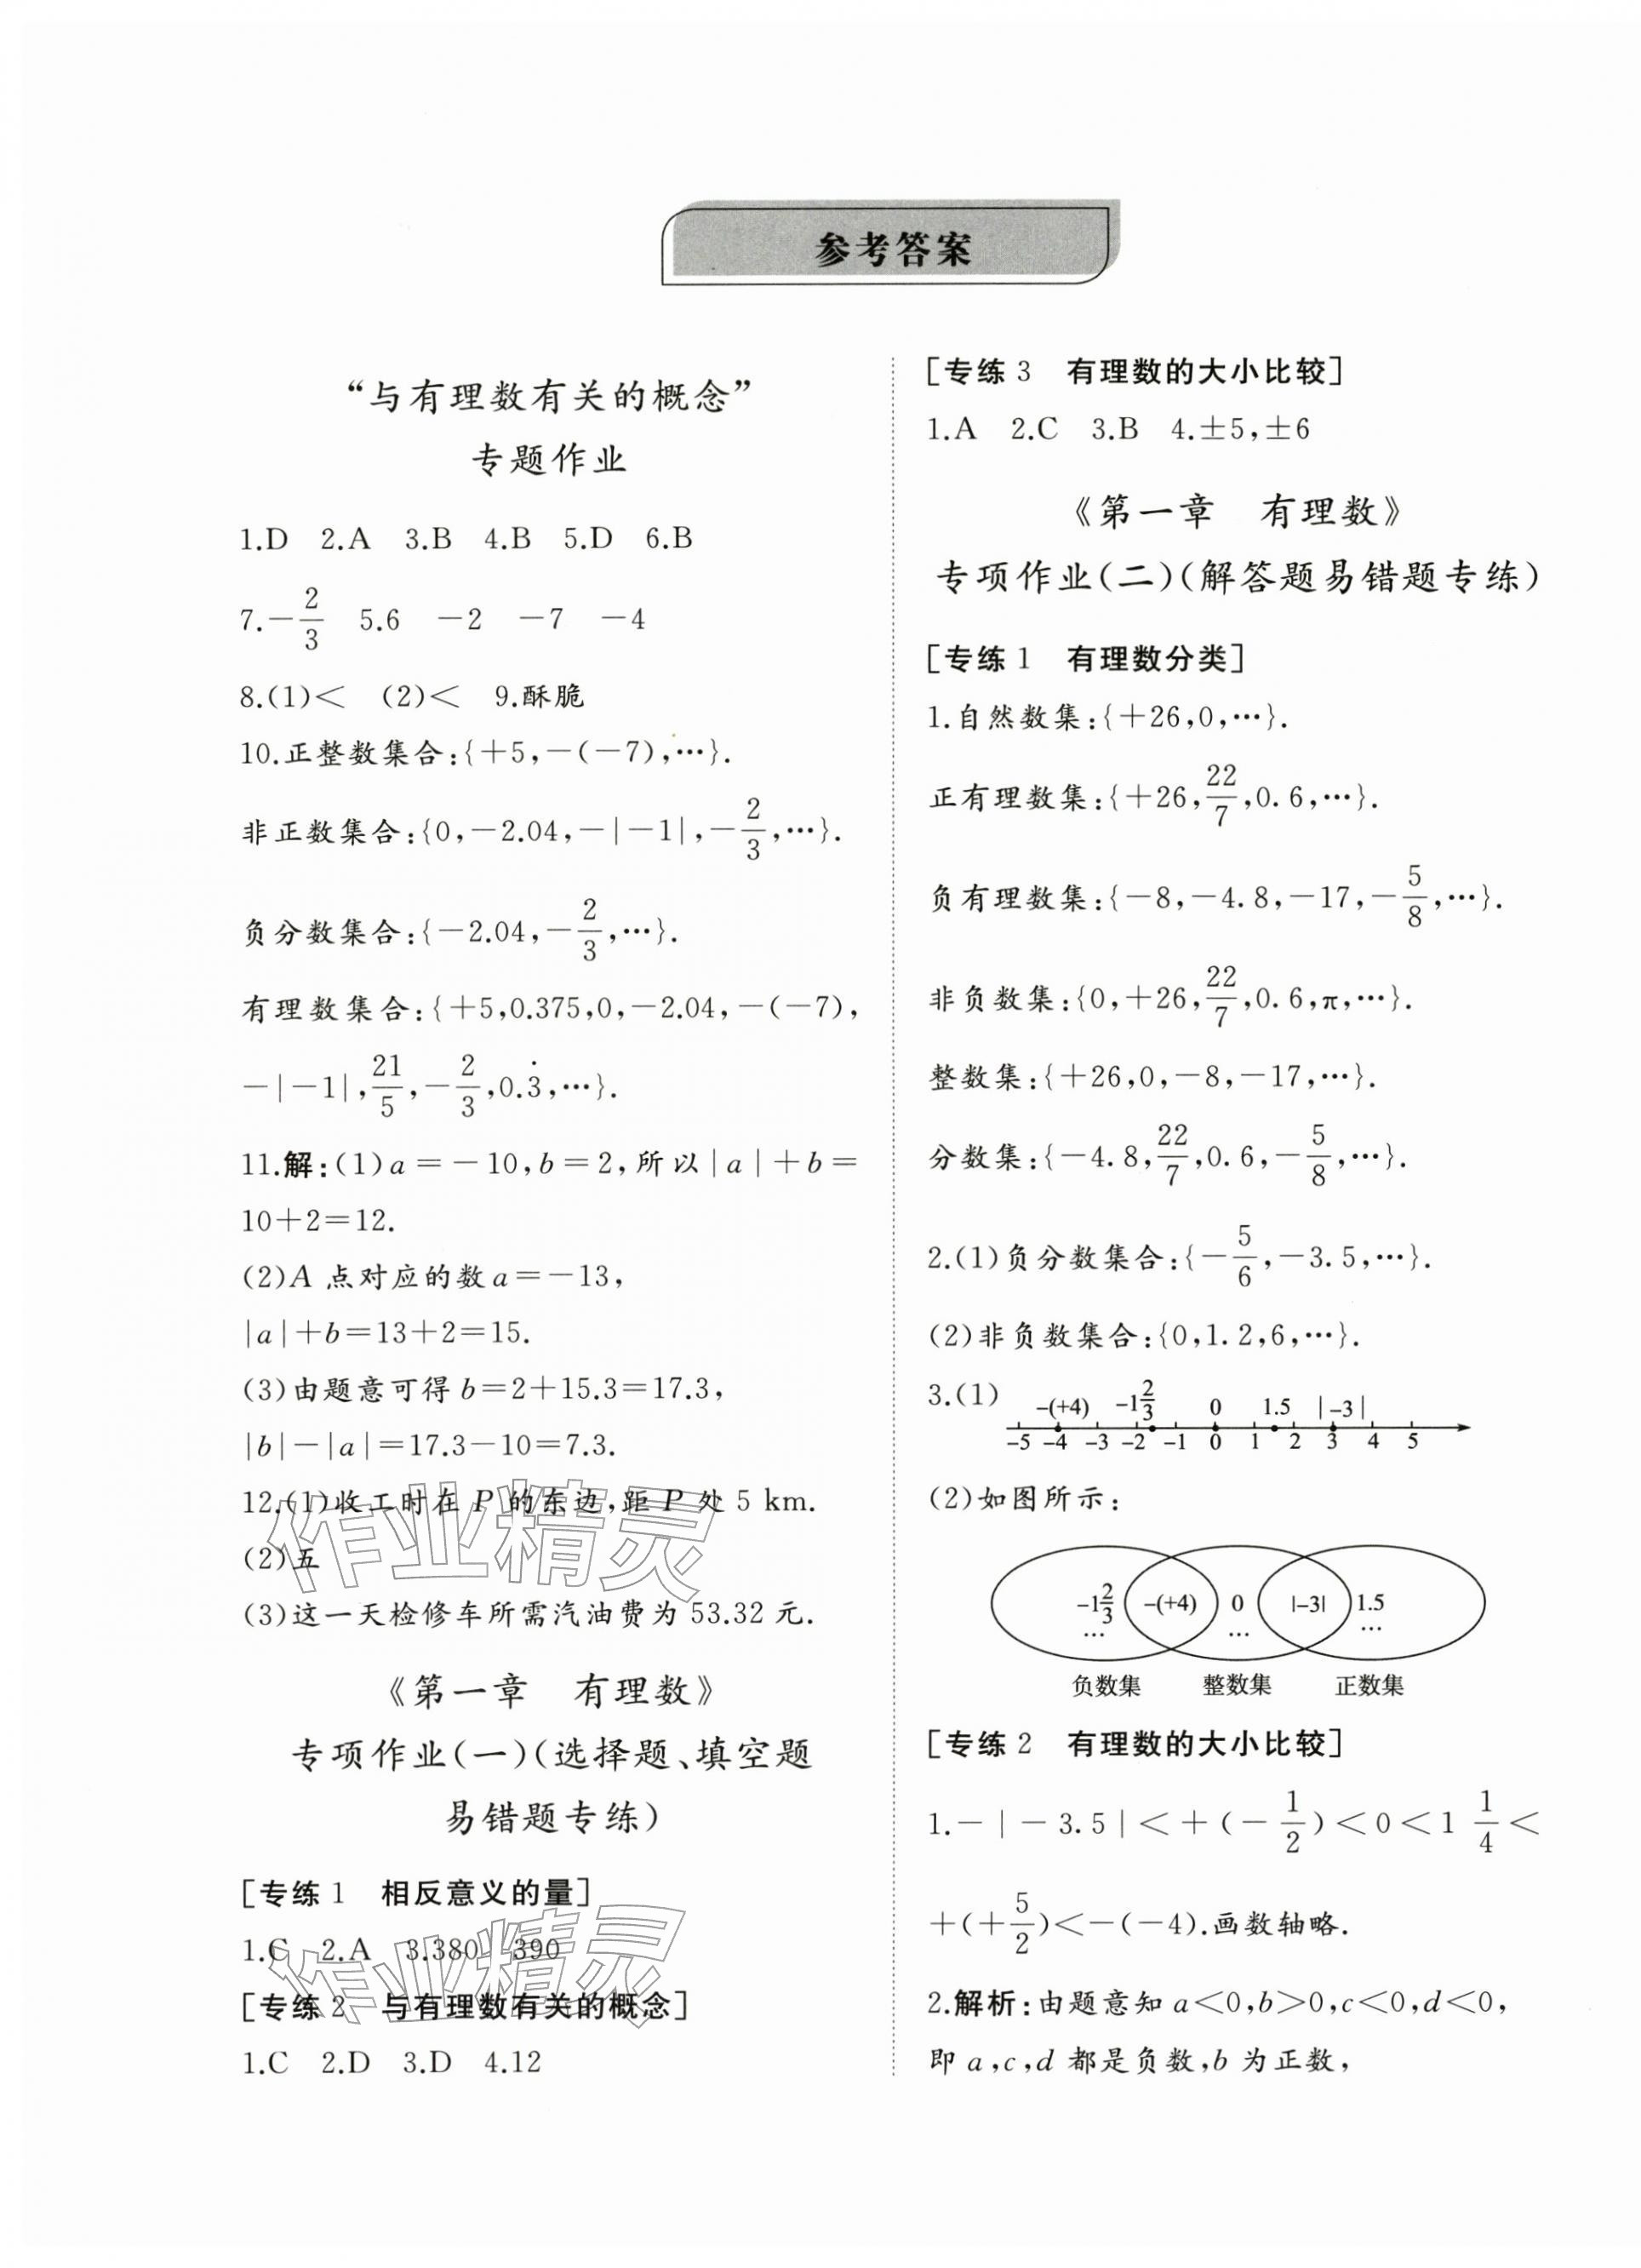 参考答案
“与有理数有关的概念”
专题作业
1.D 2.A 3.B 4.B 5.D 6.B
7.－2/3 5.6 －2 －7 －4
8.(1)＜ (2)＜ 9.酥脆
10.正整数集合:{＋5,－(－7),…}.
非正数集合:{0,－2.04,－|－1|,－2/3,…}.
负分数集合:{－2.04,－2/3,…}.
有理数集合:{＋5,0.375,0,－2.04,－(－7),
－|－1|,21/5,－2/3,0.3̇,…}.
11.解:(1)a＝－10,b＝2,所以|a|＋b＝
10＋2＝12.
(2)A 点对应的数a＝－13,
|a|＋b＝13＋2＝15.
(3)由题意可得b＝2＋15.3＝17.3,
|b|－|a|＝17.3－10＝7.3.
12.(1)收工时在 P 的东边,距 P 处 5 km.
(2)五
(3)这一天检修车所需汽油费为 53.32 元.
《第一章 有理数》
专项作业(一)(选择题、填空题
易错题专练)
[专练 1 相反意义的量]
1.C 2.A 3.380 390
[专练 2 与有理数有关的概念]
1.C 2.D 3.D 4.12
作业精灵
作业精灵
[专练 3 有理数的大小比较]
1.A 2.C 3.B 4.±5,±6
《第一章 有理数》
专项作业(二)(解答题易错题专练)
[专练 1 有理数分类]
1.自然数集:{＋26,0,…}.
正有理数集:{＋26,22/7,0.6,…}.
负有理数集:{－8,－4.8,－17,－5/8,…}.
非负数集:{0,＋26,22/7,0.6,π,…}.
整数集:{＋26,0,－8,－17,…}.
分数集:{－4.8,22/7,0.6,－5/8,…}.
2.(1)负分数集合:{－5/6,－3.5,…}.
(2)非负数集合:{0,1.2,6,…}.
3.(1) －(+4) －1 2/3 0 1.5 |－3|
－5 －4 －3 －2 －1 0 1 2 3 4 5
(2)如图所示:
－1 2/3 －(+4) 0 |－3| 1.5
… … …
负数集 整数集 正数集
[专练 2 有理数的大小比较]
1.－|－3.5|＜＋(－1/2)＜0＜1 1/4＜
＋(＋5/2)＜－(－4).画数轴略.
2.解析:由题意知 a＜0,b＞0,c＜0,d＜0,
即 a,c,d 都是负数,b 为正数,